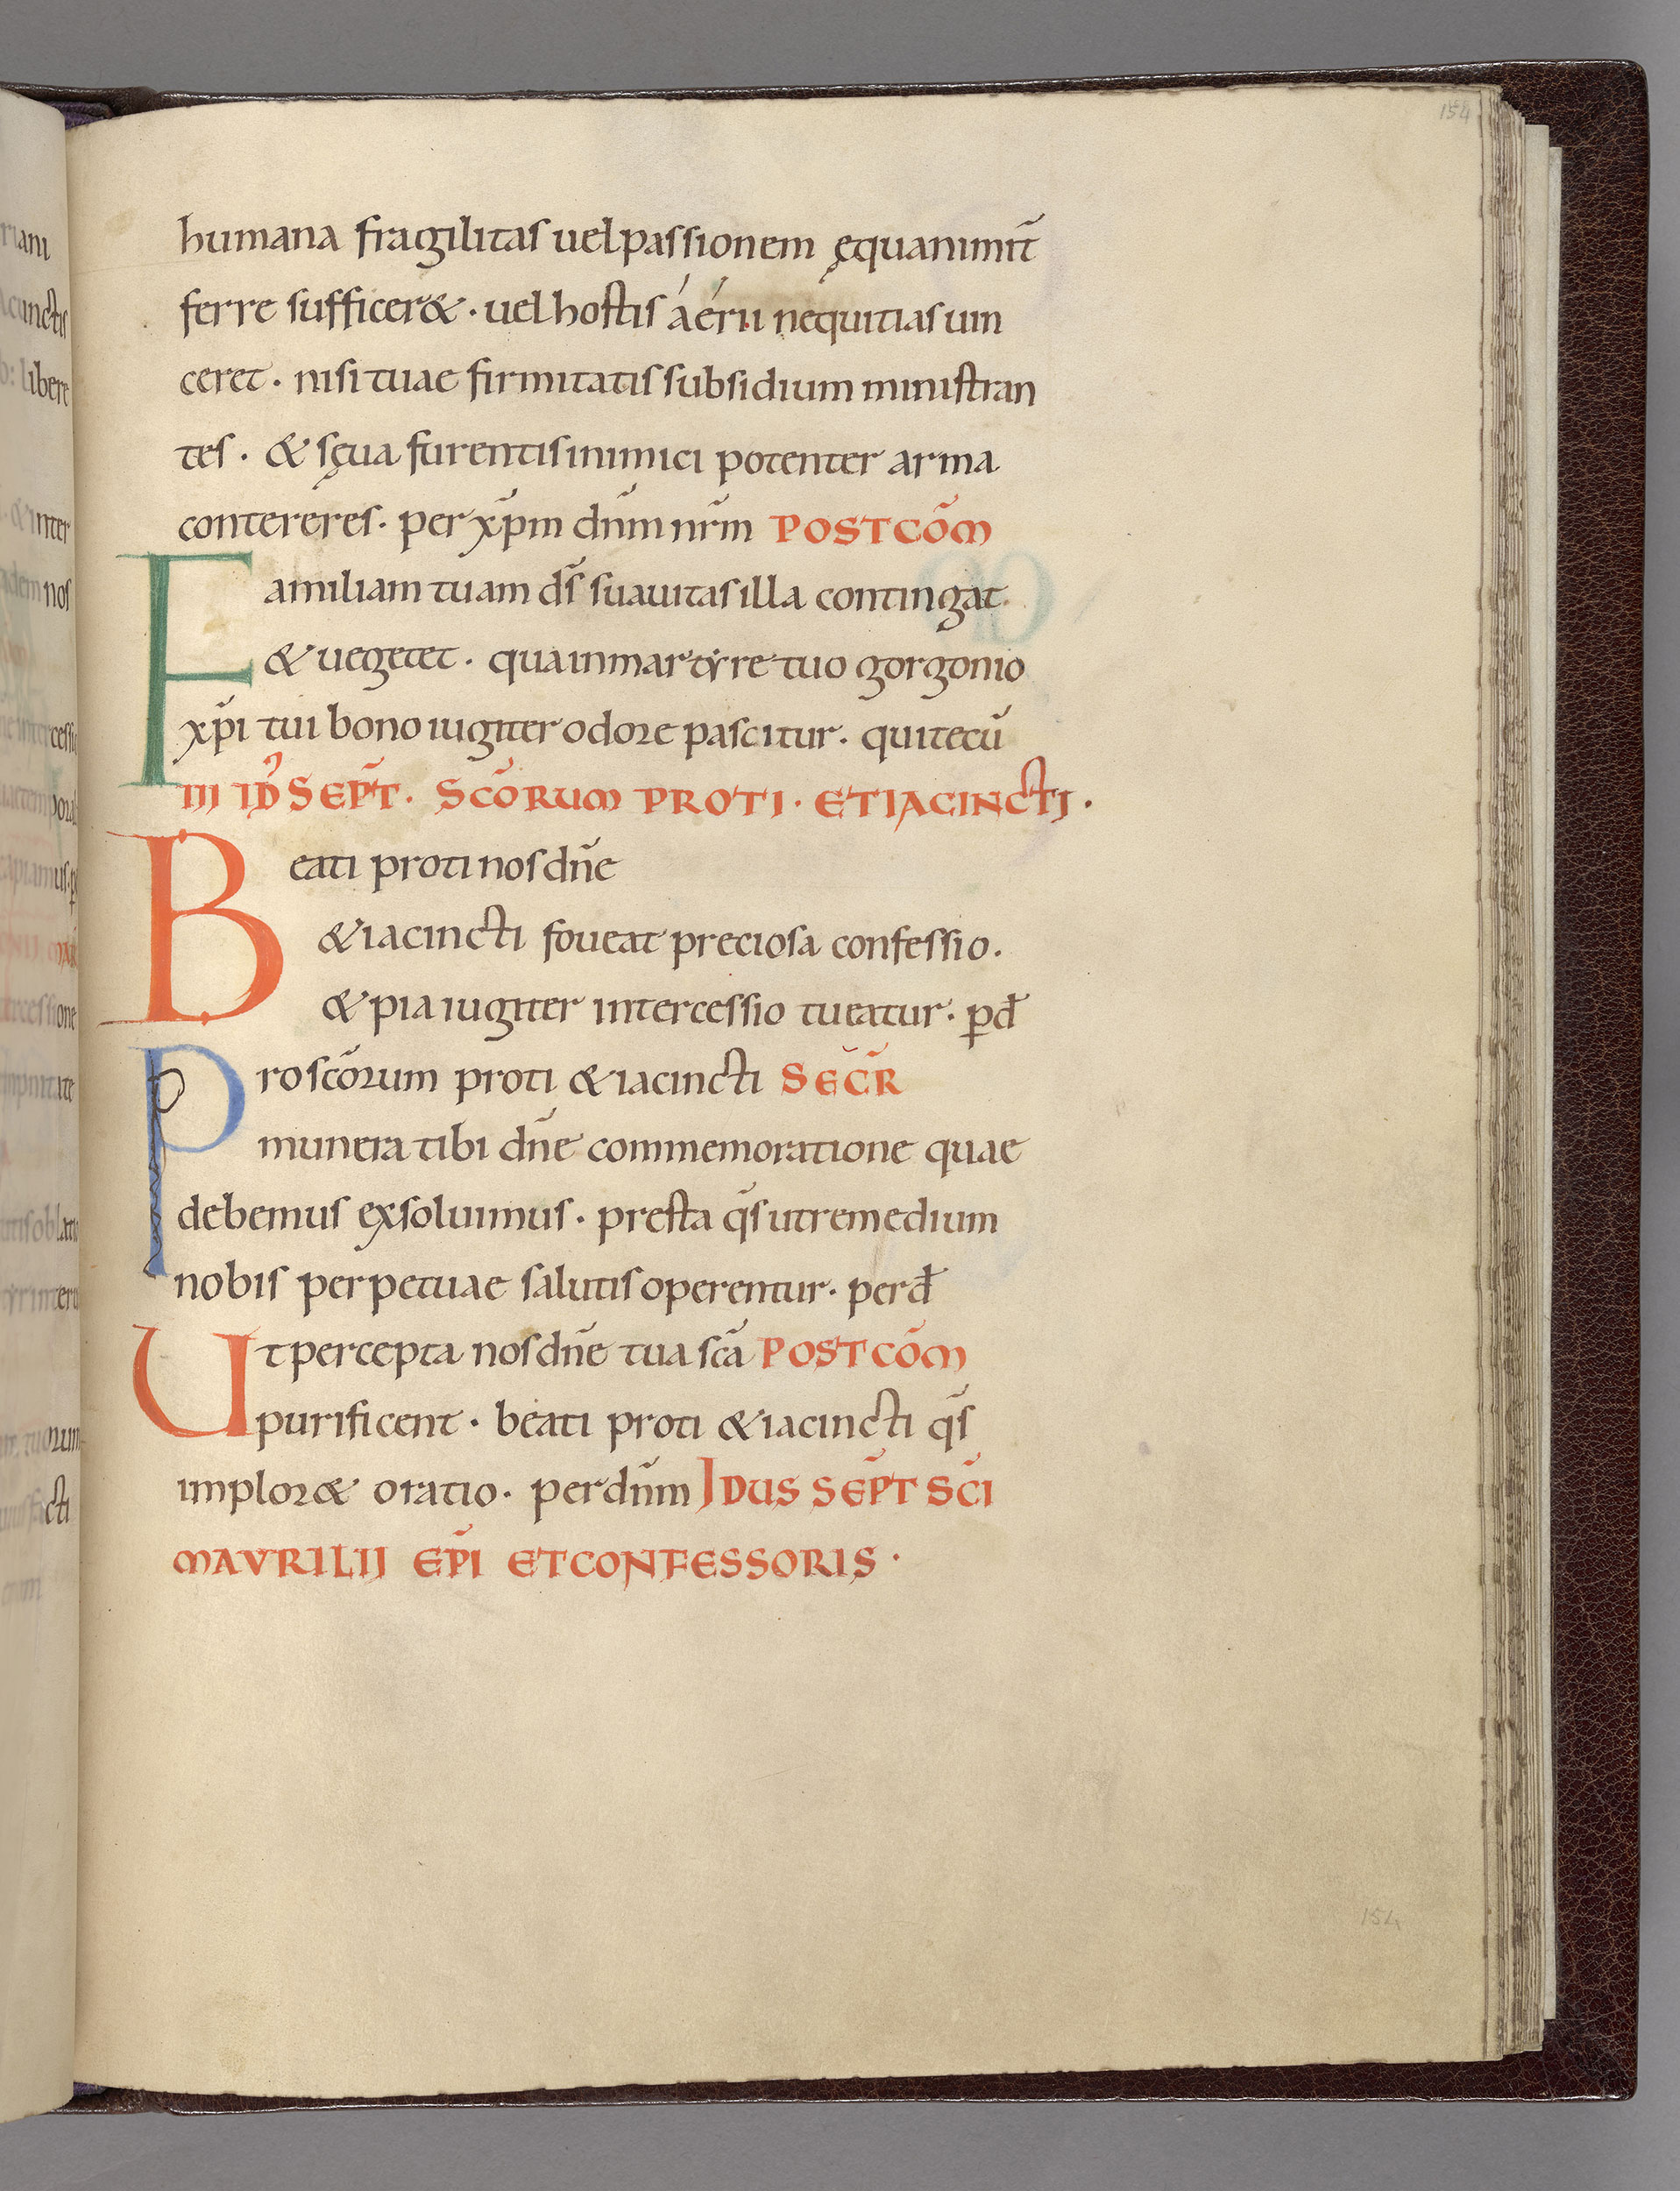 154
humana fragilitas uel passionem ęquanimit̃
ferre sufficer&· uel hostis áérii nequitias uin
ceret· nisi tuae firmitatis subsidium ministran
tes· & sęua furentis inimici potenter arma
contereres· per xp̃m dñm nr̃m POSTCOM̃
Familiam tuam ds̃ suauitas illa contingat·
& uegetet· qua in martyre tuo gorgonio
xp̃i tui bono iugiter odore pascitur· qui tecũ
III ID SEPT̃· SCÕRUM PROTI· ET IACINCTI·
Beati proti nos dñe
& iacincti foueat preciosa confessio·
& pia iugiter intercessio tueatur· ꝑ đ
Pro scõrum proti & iacincti SECR̃
munera tibi dñe commemoratione quae
debemus exsoluimus· presta qs̃ ut remedium
nobis perpetuae salutis operentur· per đ
Ut percepta nos dñe tua scã POSTCOM̃
purificent· beati proti & iacincti qs̃
implor& oratio· per dñm IDUS SEPT̃ SCI̅
MAVRILII EP̃I ET CONFESSORIS·
154